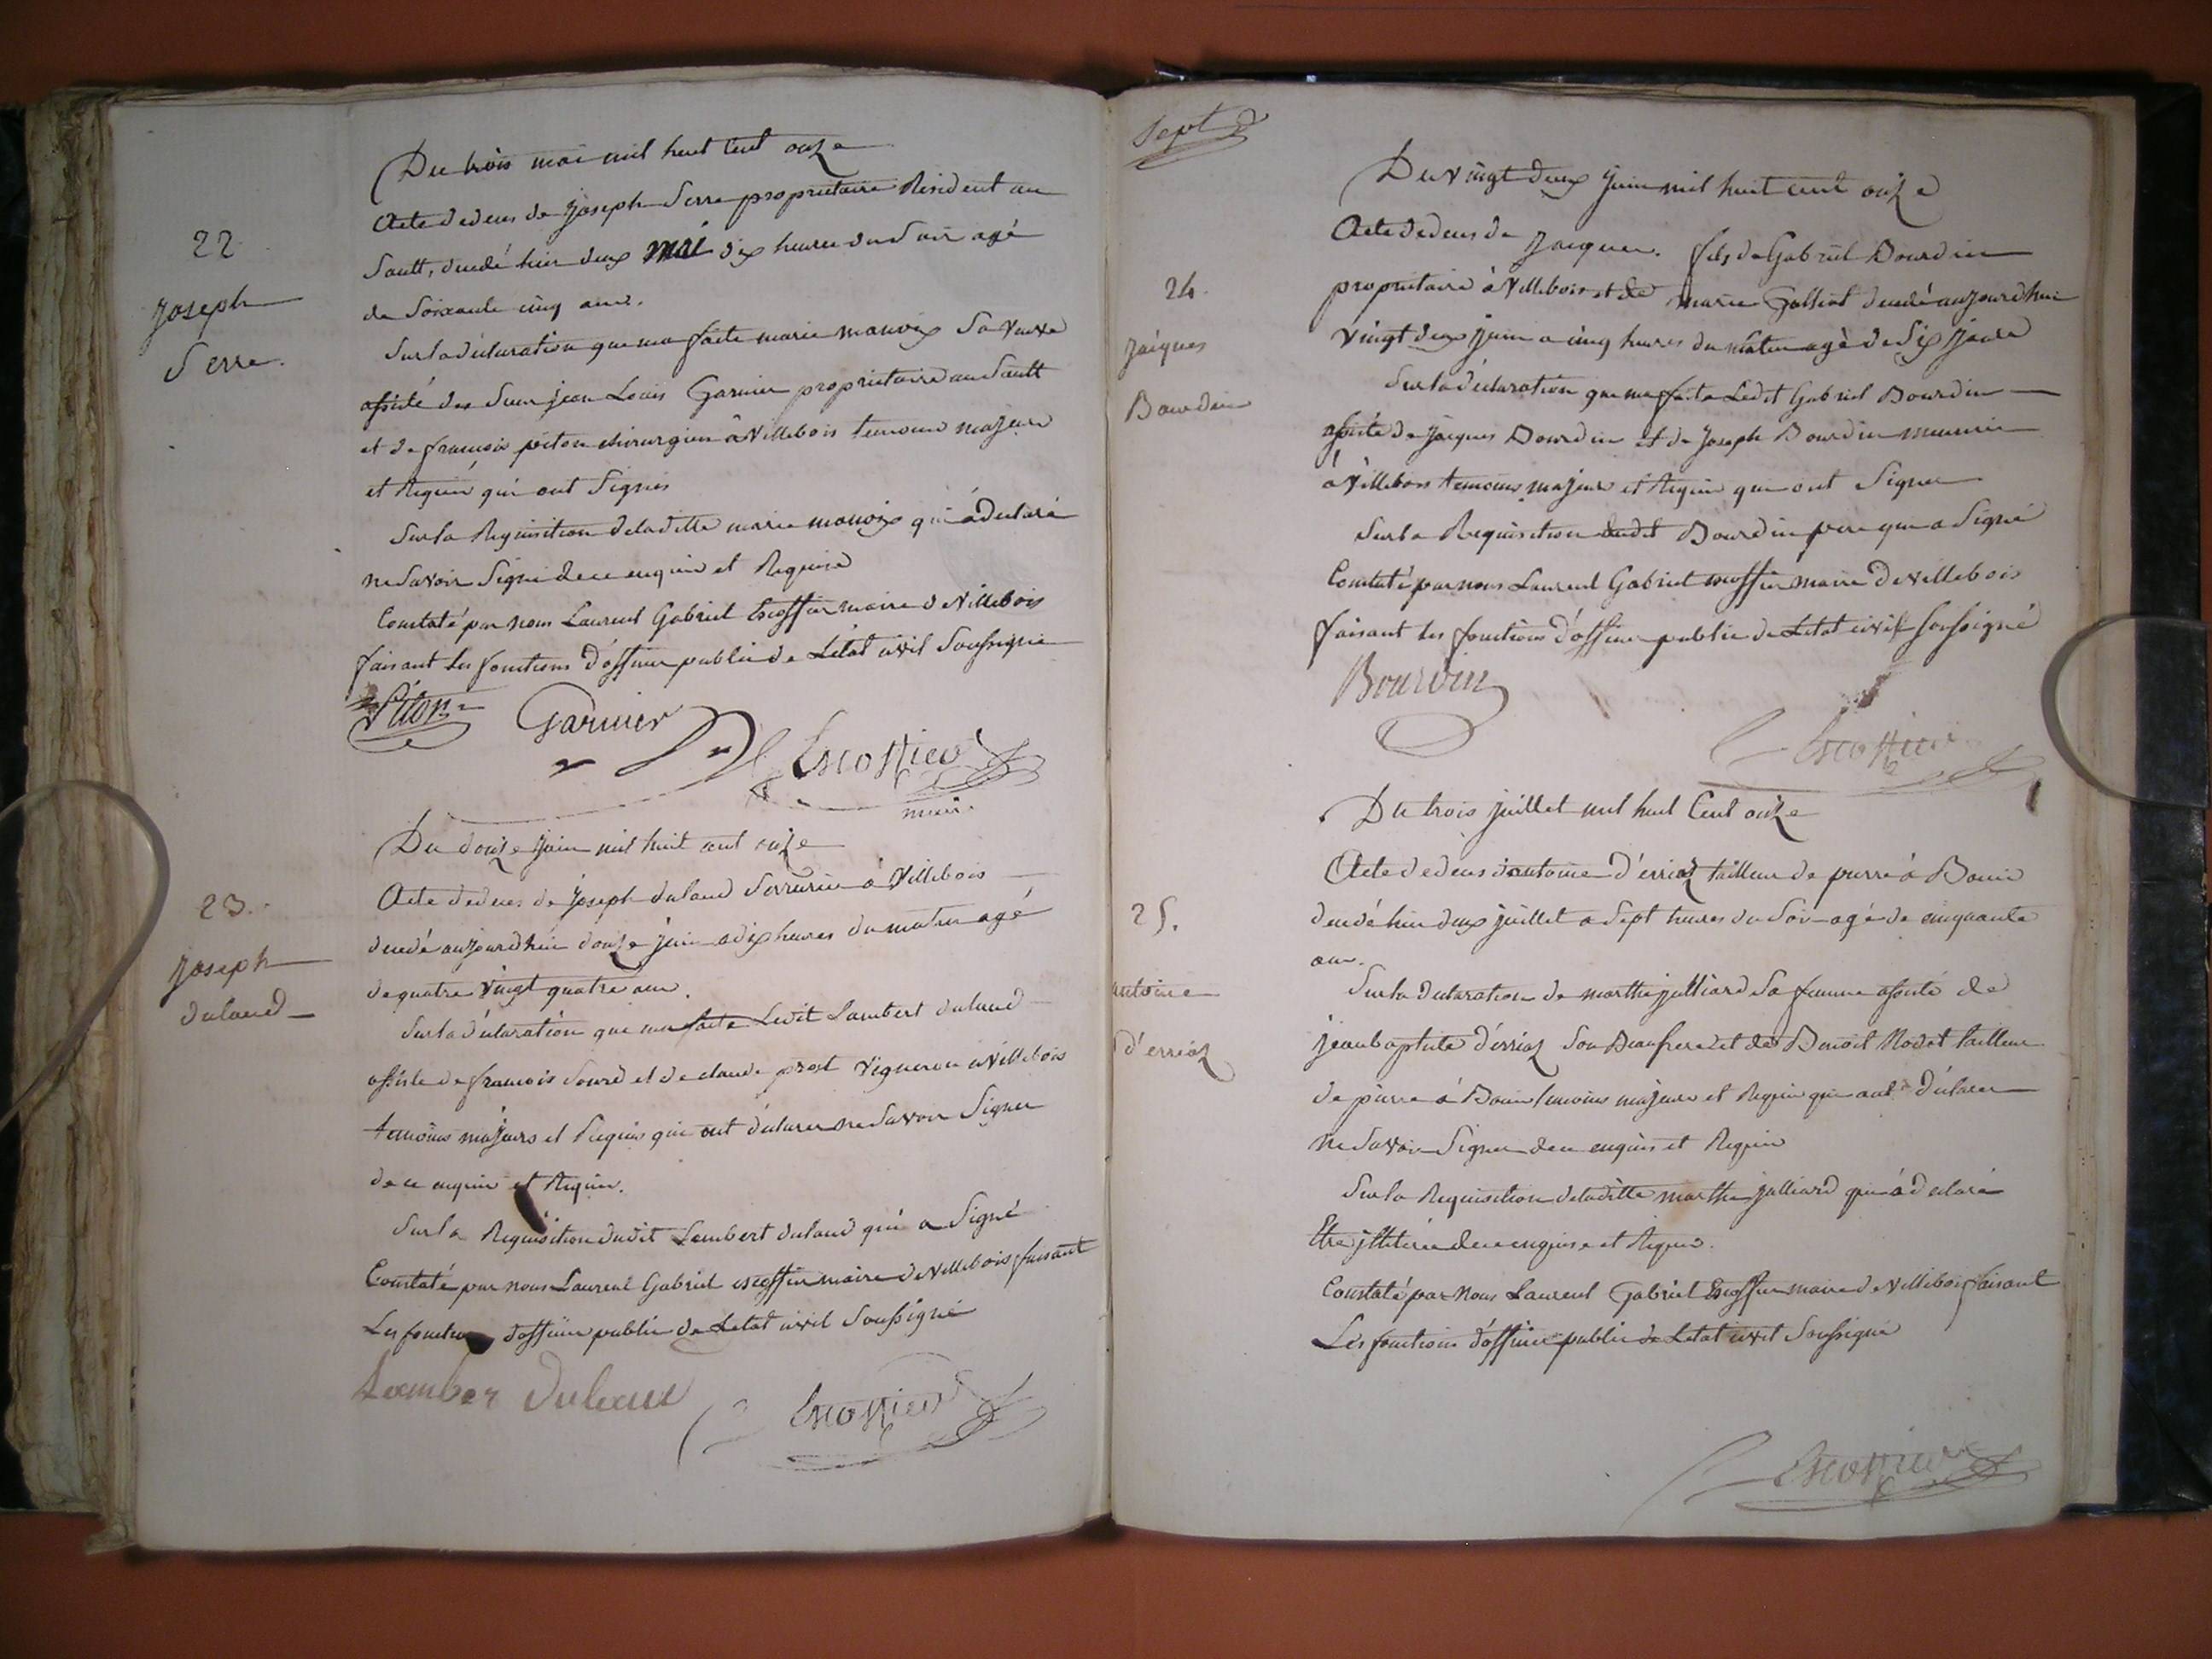 22
Joseph
Serre.
Du trois mai mil huit cent onze
Acte de deces de Joseph Serre proprietaire Résident au
Sault, decedé hier deux mai dix heures du Soir agé
de Soixante cinq ans.
Sur la déclaration que ma faite marie manoix Sa veuve
assisté des Sieur jean Louis Garnier proprietaire au Sault
et de françois piton chirurgien à Villebois temoins majeurs
et Requis qui ont Signés
Sur la Requisition de laditte marie manoix qui à déclaré
ne Savoir Signé de ce enquise et Requise
Constaté par nous Laurent Gabriel Escoffier maire de Villebois
faisant les fonctions d'officier public de Létat civil Soussigné
Piton Garnier Escoffier
maire.
23.
Joseph
dulaud
Du douze juin mil huit cent onze
Acte de deces de Joseph dulaud Serrurier à Villebois
decedé aujourdhui douze juin a dix heures du matin agé
de quatre vingt quatre ans.
Sur la déclaration que ma faite Ledit Lambert dulaud
assisté de francois Sourd et de claude prost Vigneron a Villebois
temoins majeurs et Requis qui ont déclarer ne Savoir Signer
de ce enquis et Requis.
Sur la Requisition dudit Lambert dulaud qui a Signé
Constaté par nous Laurent Gabriel escoffier maire de Villebois faisant
Les fonctions d'officier public de Letat civil Soussigné
Lamber Dulaud Escoffier
Sept
24.
Jaiques
Bourdin
Du vingt deux Juin mil huit cent onze
Acte de deces de Jacques. fils de Gabriel Bourdin
proprietaire à Villebois et de marie Galliot decedé aujourdhui
vingt deux juin a cinq heures du matin agé de Six jours
Sur la déclaration que ma faite Ledit Gabriel Bourdin
assisté de Jaques Bourdin et de Joseph Bourdin meunier
à Villebois temoins majeurs et Requis qui ont Signer
Sur la Requisition dudit Bourdin pere qui a Signé
Constaté par nous Laurent Gabriel escoffier maire de Villebois
faisant les fonctions d'officier public de Létat civil Soussigné
Bourdin
Escoffier
25.
antoine
d'erriaz
Du trois juillet mil huit Cent onze
Acte de deces d'antoine d'erriaz tailleur de pierre à Bouis
decedé hier deux juillet a Sept heures du Soir agé de cinquante
ans.
Sur la déclaration de marthe julliard Sa femme assisté de
jean baptiste d'erriaz Son Beaufrere et de Benoit Nodet tailleur
de pierre à Bouis temoins majeurs et Requis qui ont déclarer
ne Savoir Signer de ce enquis et Requis
Sur la Requisition de laditte marthe julliard qui à declaré
Etre jlliterée de ce enquise et Requis.
Constaté par nous Laurent Gabriel Escoffier maire de Villebois faisant
Les fonctions d'officier public de Létat civil Soussigné
Escoffier